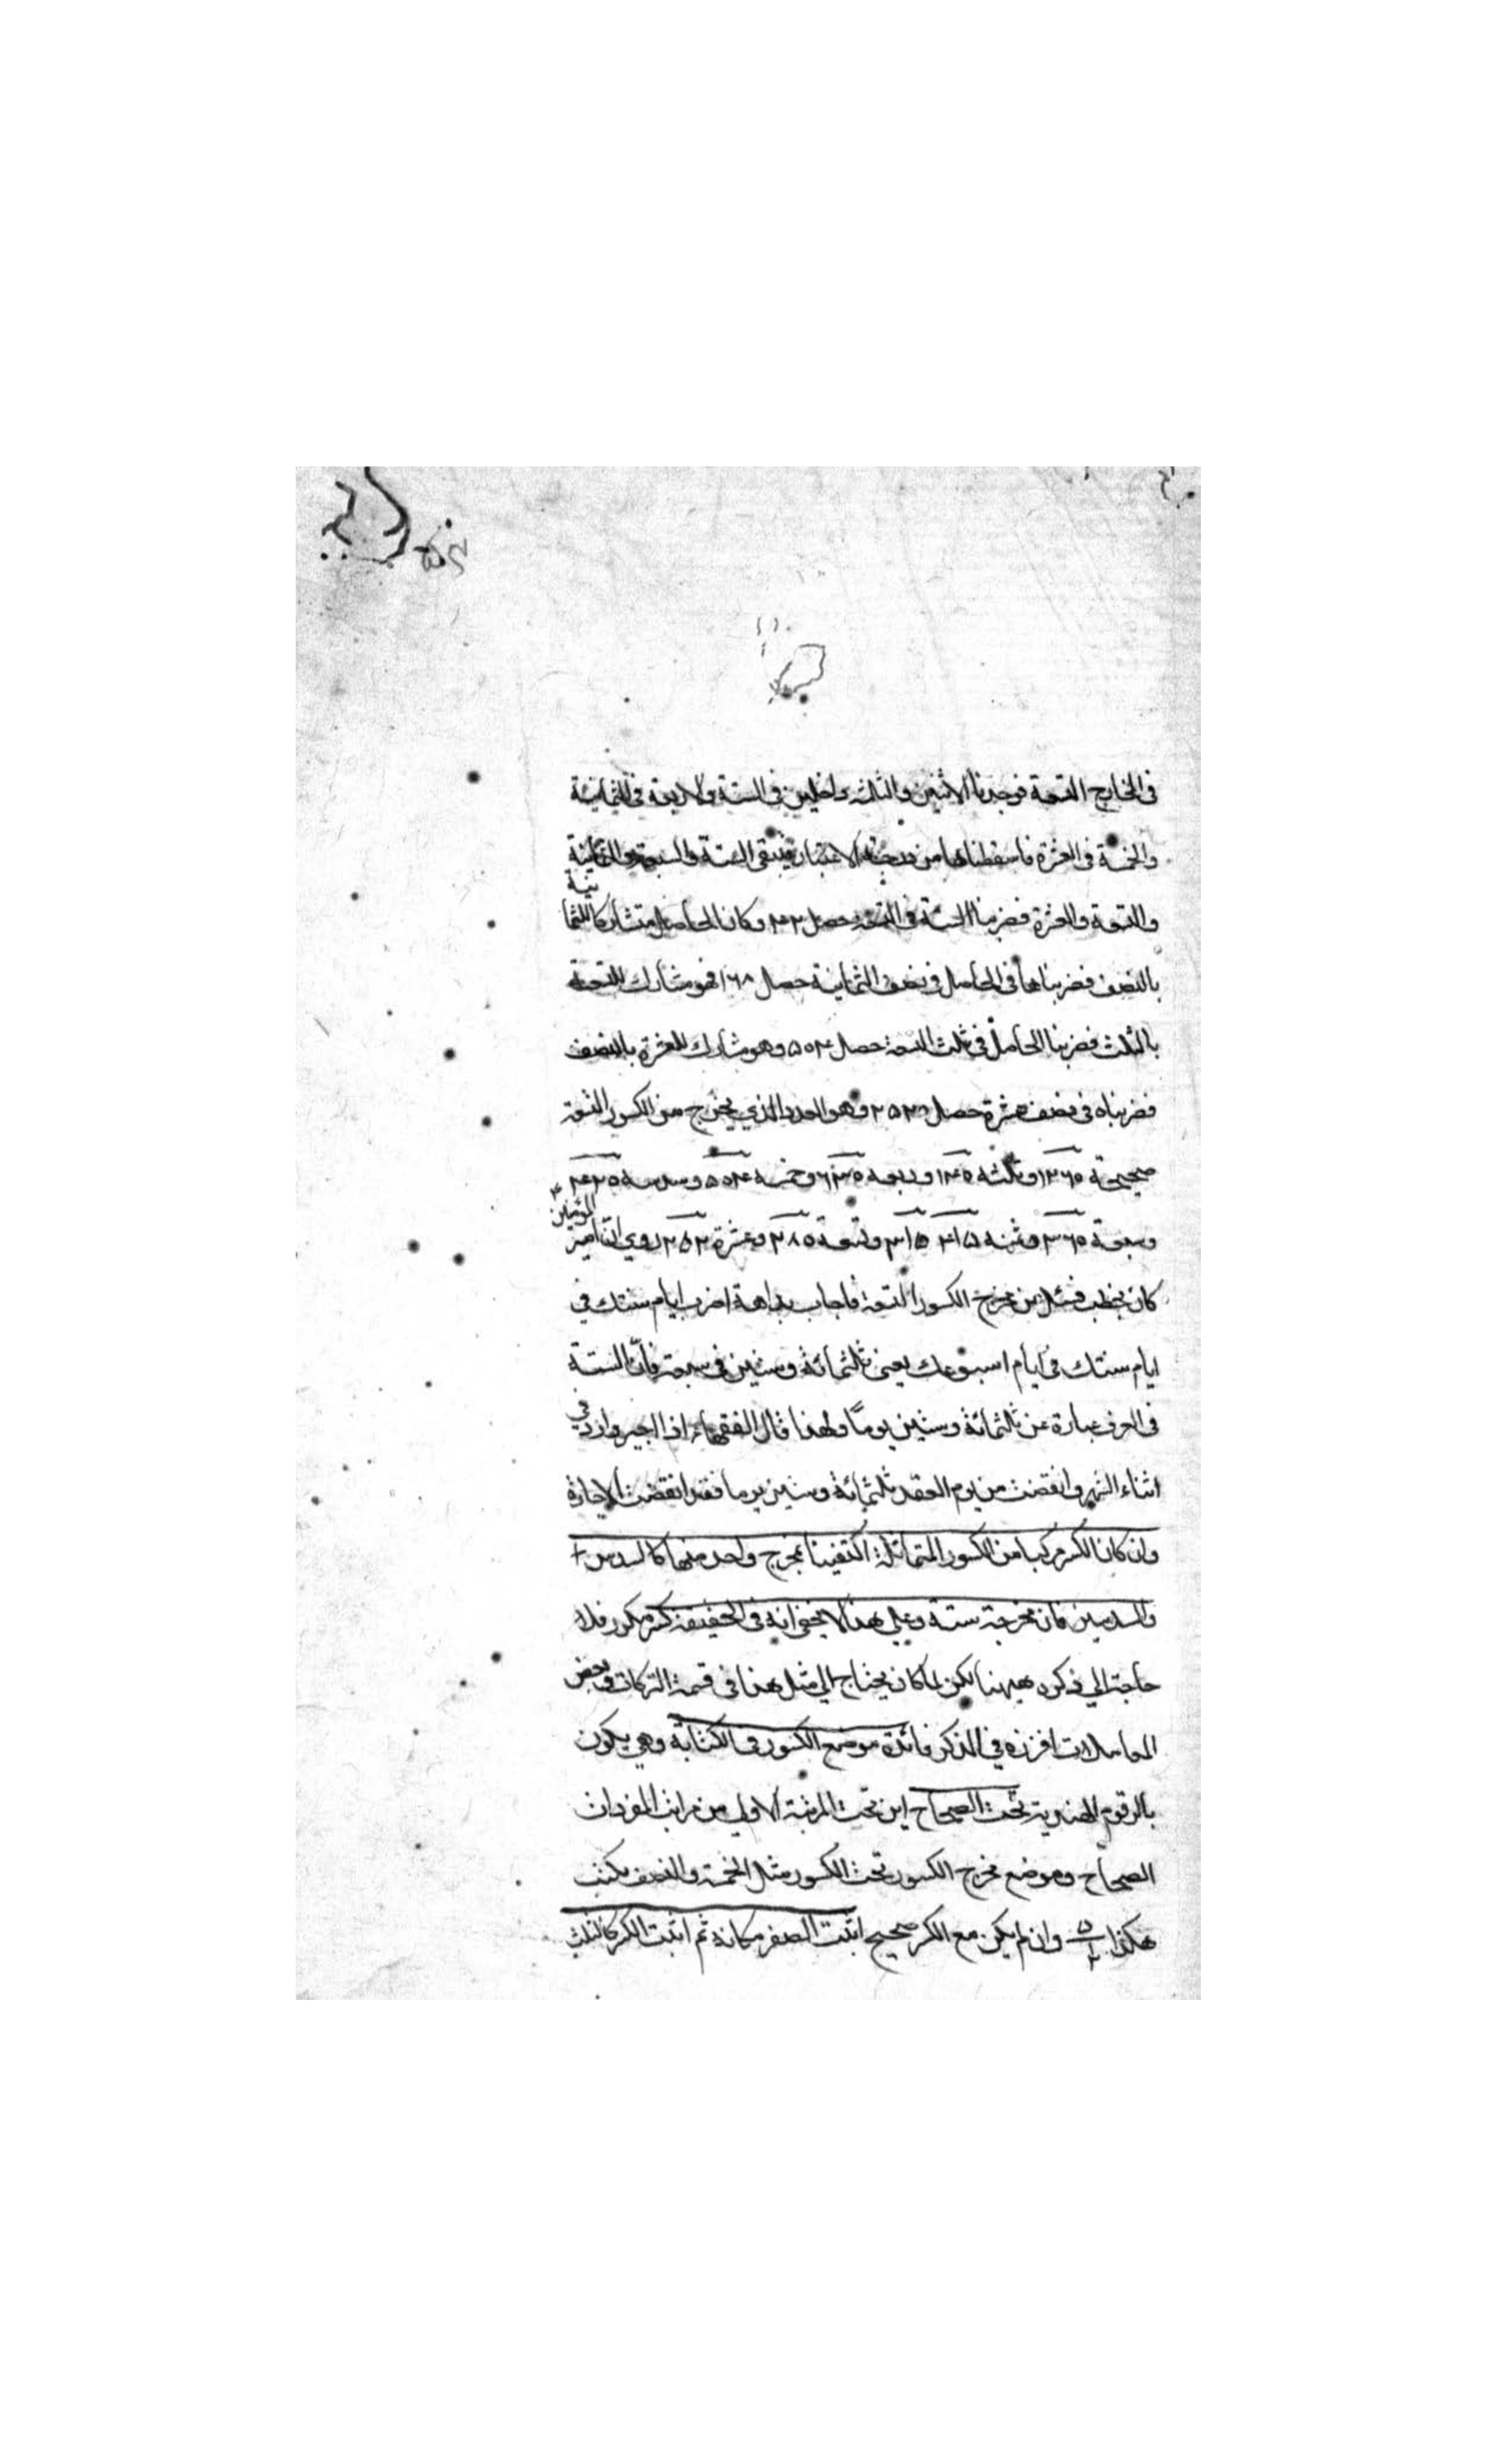 فى المخارج التسعة فوجدنا الاثنين والثلثة داخلين فى الستة والاربعة فى الثمانية
والخمسة فى العشرة فاسقطناها من درجة الاعتبار فيبقى الستة والسبعة والثمانية
والتسعة والعشرة فضربنا الستة فى السبعة حصل ۴۲ وكان الحاصل متشاركا للثمانية
بالنصف فضربناها فى الحاصل فى نصف الثمانية حصل ۱۶۸ فهو مشارك للتسعة
بالثلث فضربنا الحاصل فى ثلث التسعة حصل ۵۰۴ وهو مشارك للعشرة بالنصف
فضربناه فى نصف عشرة حصل ۲۵۲۰ وهو العدد الذي يخرج منه الكسور التسعة
صحيحة وثلثه وربعه وخمسه ۵۰۴ وسدسه
وسبعة وثمنه ۳۱۵ وتسعة ۲۸۰ وعشرة ۲۵۲ روي ان امير المؤمنين
كان يخطب فسئل عن مخرج الكسور التسعة فاجاب بداهة اضرب ايام سنتك في
ايام سنتك فى ايام اسبوعك يعنى ثلثمائة وستين فى سبعة فان السنة
فى العرف عبارة عن ثلثمائة وستين يوما ولهذا قال الفقهاء اذا اجير دار في
اثناء الشهر وانقضت من يوم العقد ثلثمائة وستين يوما فقد انقضت الاجارة
وان كان الكسر مركبا من الكسور المتماثلة اكتفينا بمخرج واحد منها كالسدس
والسدسين فان مخرجة ستة وعلي هذا لا يخفى انه فى الحقيقة كسر مكرر فلا
حاجة الي ذكره ههنا لكن لما كان يحتاج الي مثل هذا فى قسمة التركات وبعض
المعاملات افرزه في الذكر فائدة موضع الكسور فى الكتابة وهي يكون
بالرقوم الهندية تحت الصحاح اين تحت المرتبة الاولي من مراتب المفردات
الصحاح وموضع مخرج الكسور تحت الكسور مثل الخمسة والنصف يكتب
هكذا وان لم يكن مع الكسر صحيح اثبت الصفر مكانه ثم اثبت الكسر كالثلث